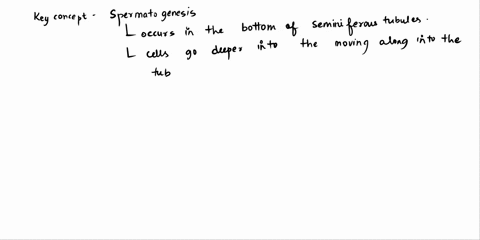 Key concept - Spermato genesis
occurs in the bottom of seminiferous tubules.
cells go deeper into the moving along into the
tub